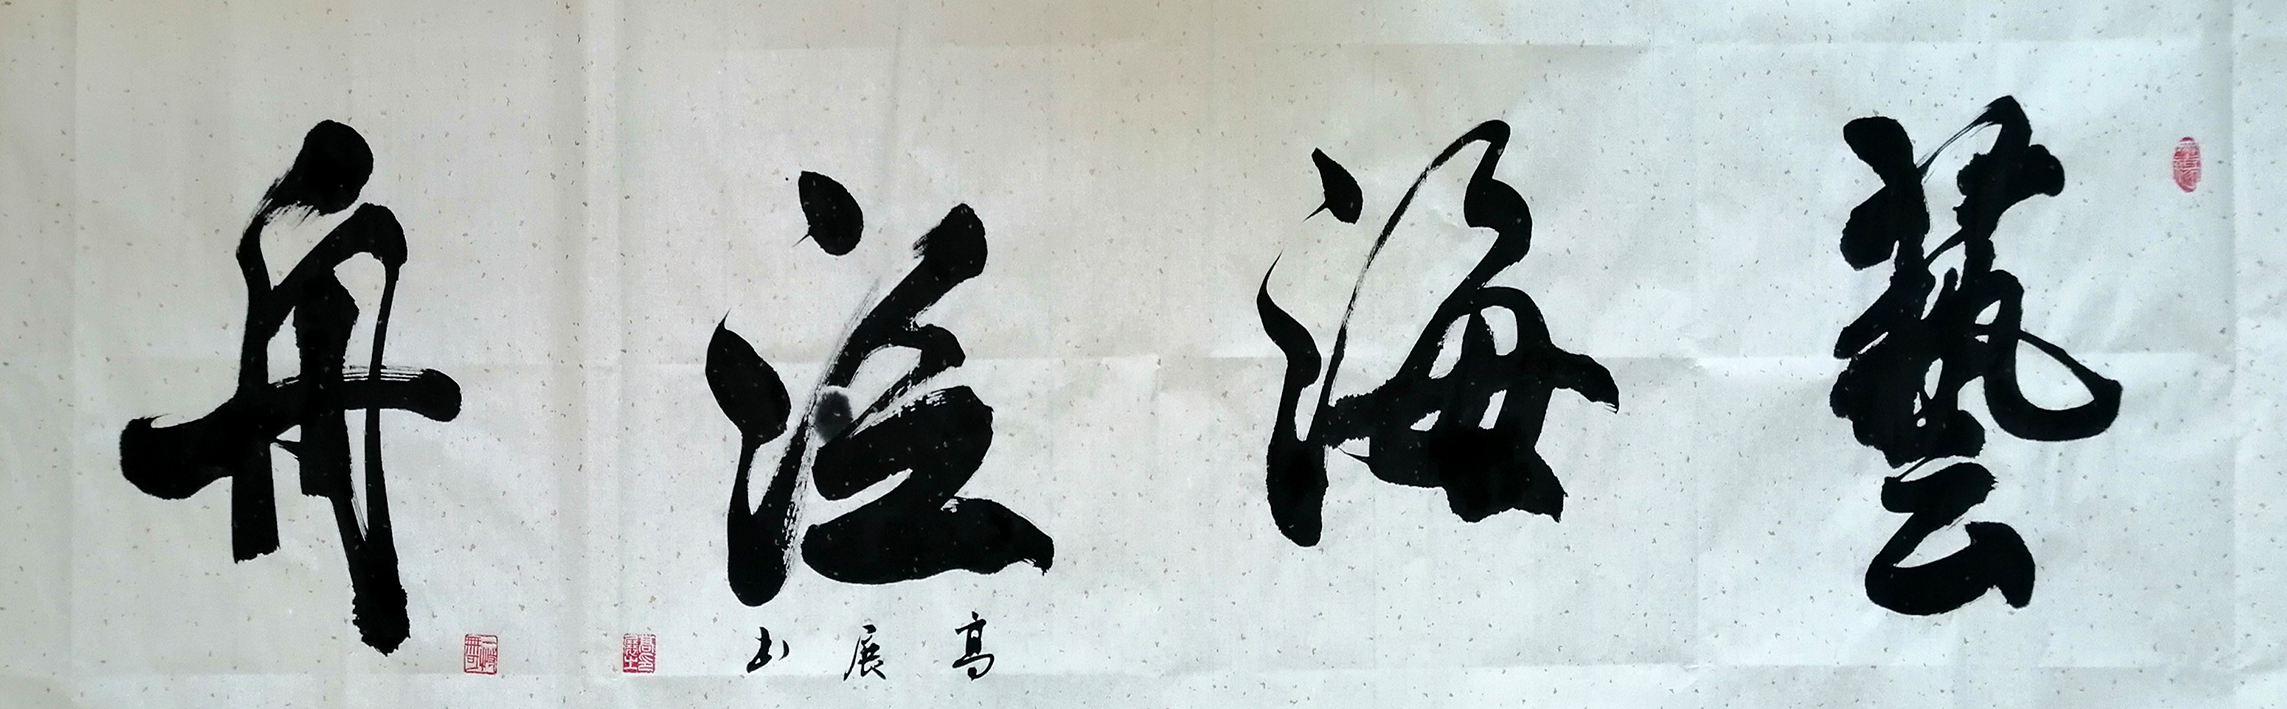 藝海泛舟
高展书